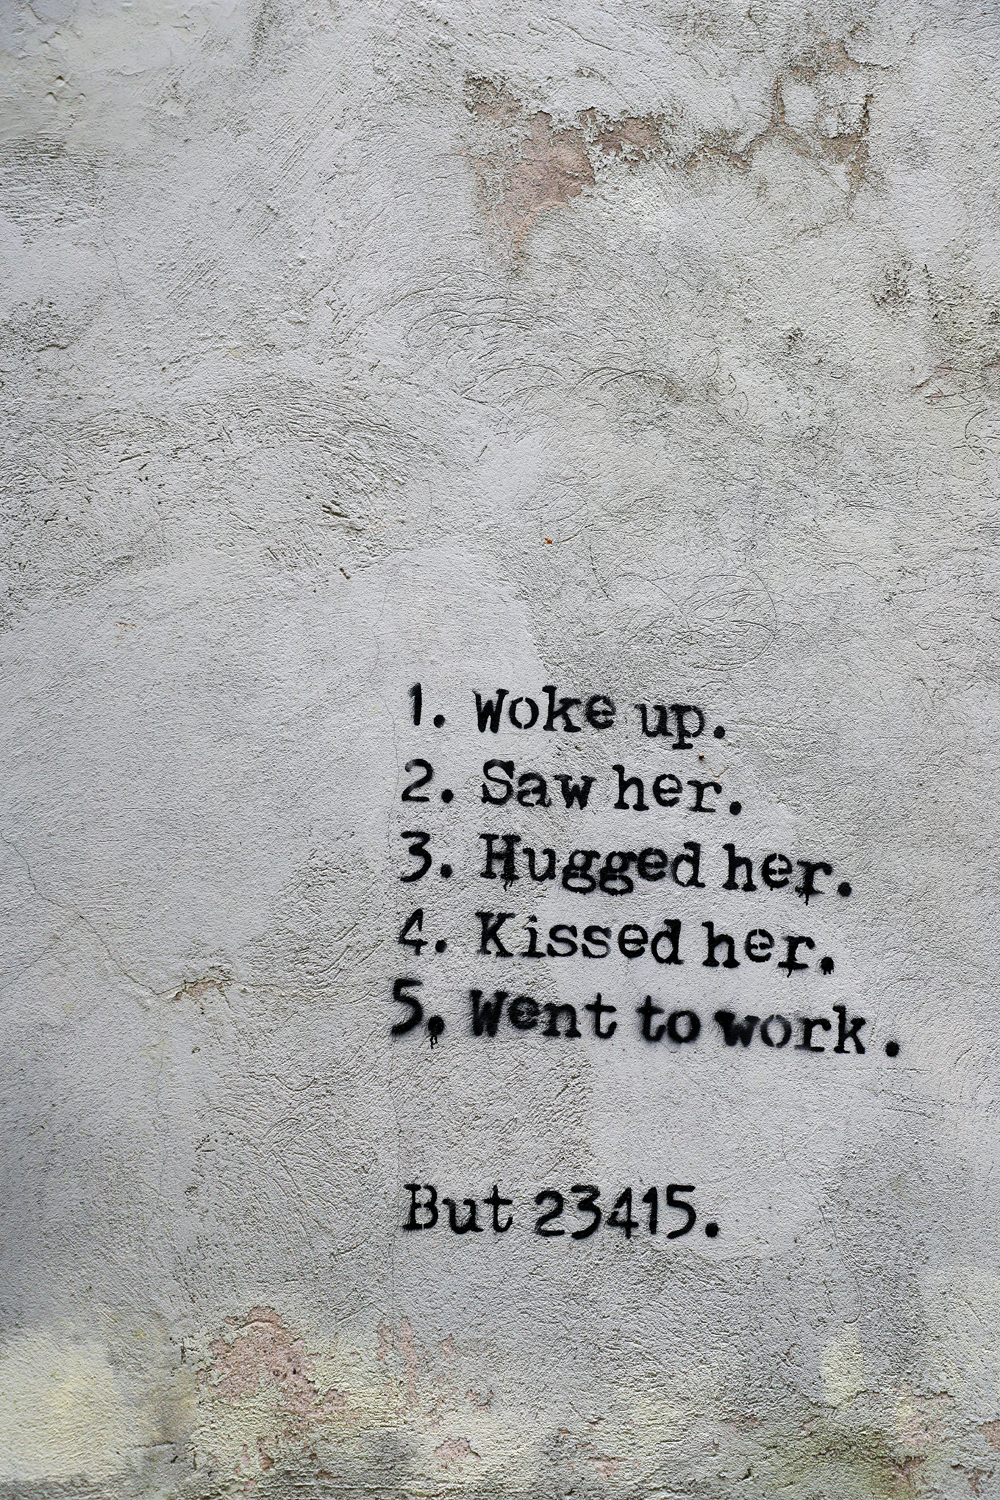 1. Woke up.
2. Saw her.
3. Hugged her.
4. Kissed her.
5. Went to work.
But 23415.